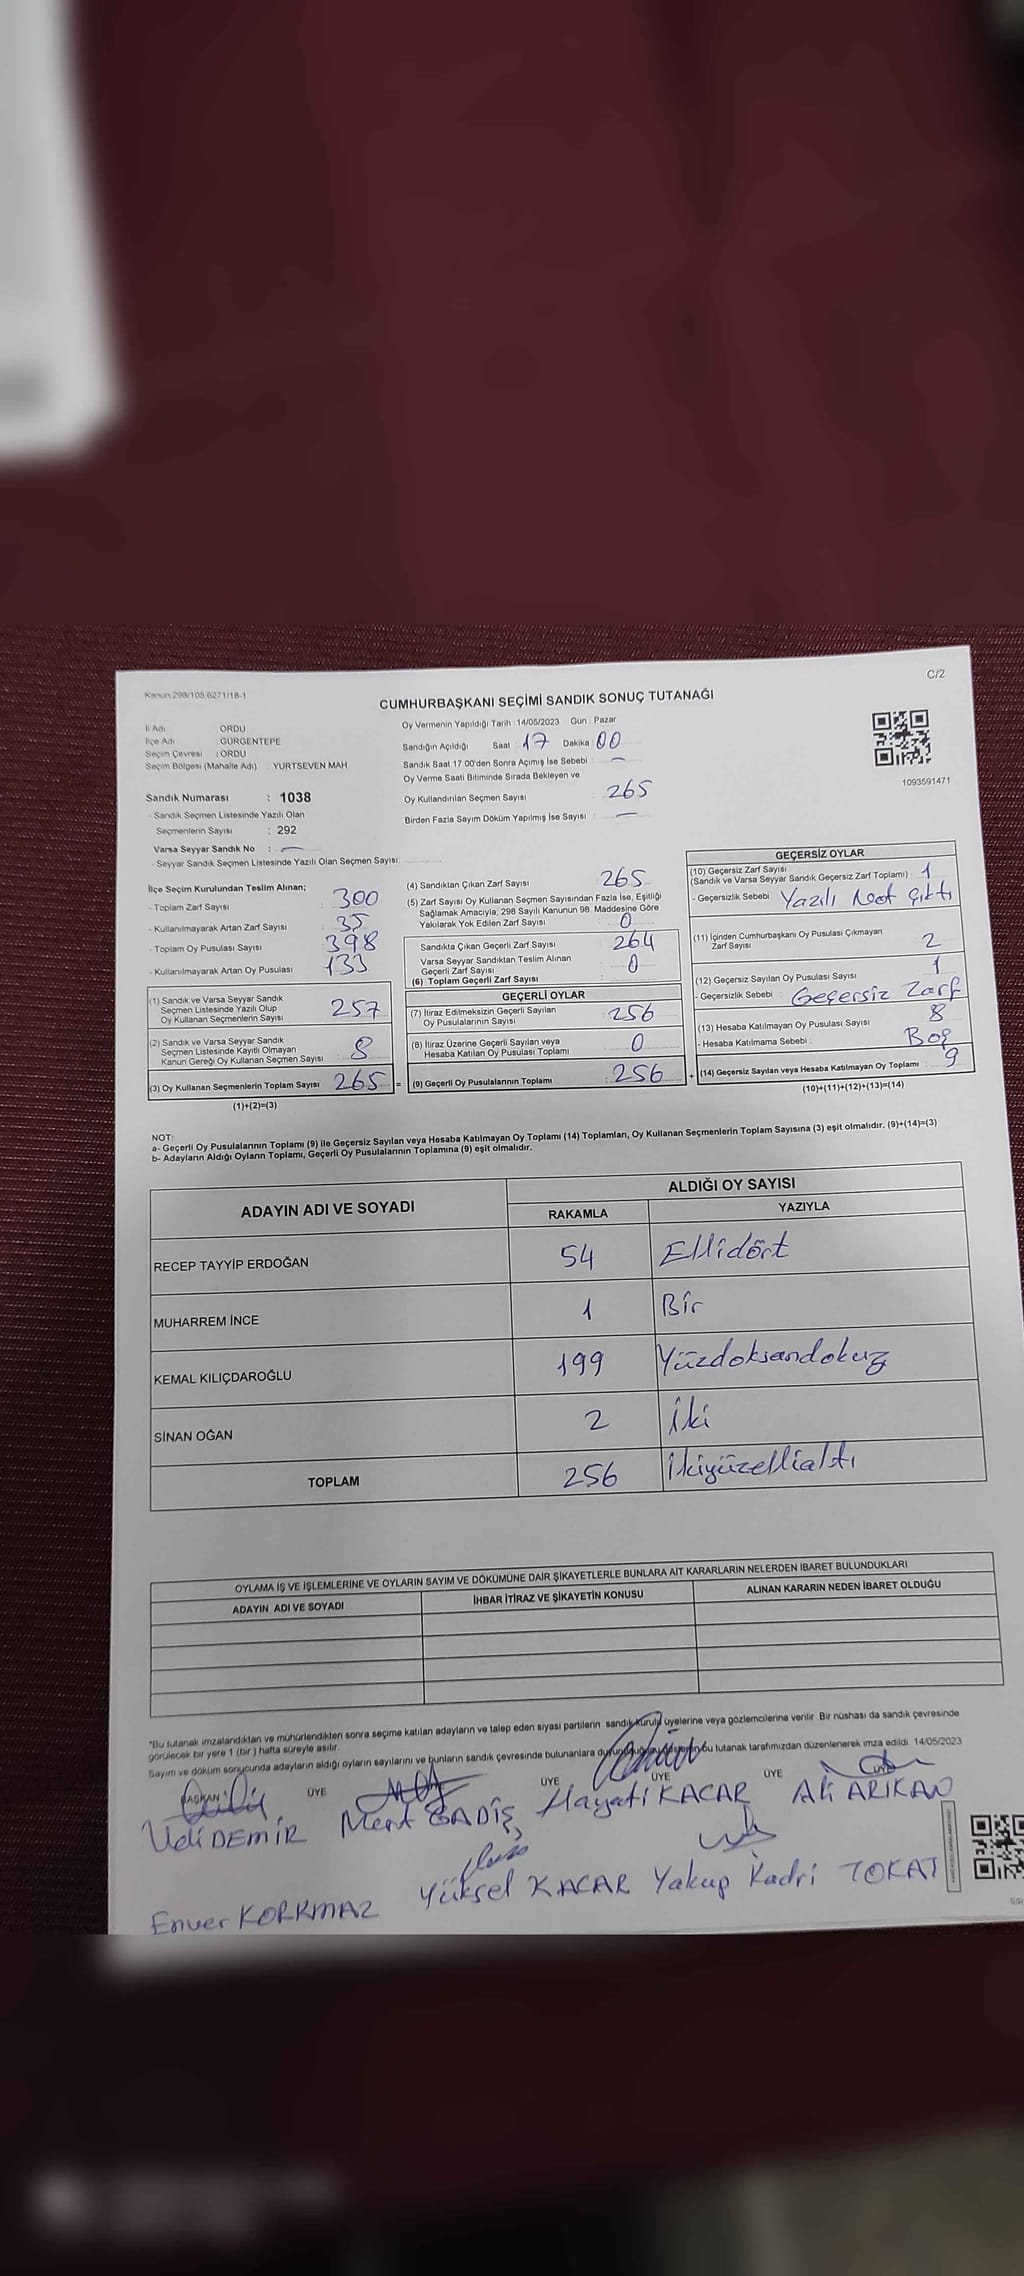 C/2
Kanun 298/105,6271/18-1
CUMHURBAŞKANI SEÇİMİ SANDIK SONUÇ TUTANAĞI
İl Adı ORDU
İlçe Adı GÜRGENTEPE
Seçim Çevresi : ORDU
Seçim Bölgesi (Mahalle Adı) YURTSEVEN MAH
Sandık Numarası : 1038
- Sandık Seçmen Listesinde Yazılı Olan
Seçmenlerin Sayısı : 292
Varsa Seyyar Sandık No :
- Seyyar Sandık Seçmen Listesinde Yazılı Olan Seçmen Sayısı:
Oy Vermenin Yapıldığı Tarih : 14/05/2023 Gün : Pazar
Sandığın Açıldığı Saat 17 Dakika 00
Sandık Saat 17 00'den Sonra Açımış İse Sebebi :
Oy Verme Saati Bitiminde Sırada Bekleyen ve
Oy Kullandırılan Seçmen Sayısı : 265
Birden Fazla Sayım Döküm Yapılmış İse Sayısı :
1093591471
İlçe Seçim Kurulundan Teslim Alınan;
- Toplam Zarf Sayısı : 300
- Kullanılmayarak Artan Zarf Sayısı : 35
- Toplam Oy Pusulası Sayısı : 398
- Kullanılmayarak Artan Oy Pusulası : 133
(1) Sandık ve Varsa Seyyar Sandık
Seçmen Listesinde Yazılı Olup
Oy Kullanan Seçmenlerin Sayısı : 257
(2) Sandık ve Varsa Seyyar Sandık
Seçmen Listesinde Kayıtlı Olmayan
Kanun Gereği Oy Kullanan Seçmen Sayısı : 8
(3) Oy Kullanan Seçmenlerin Toplam Sayısı : 265 =
(1)+(2)=(3)
(4) Sandıktan Çıkan Zarf Sayısı : 265
(5) Zarf Sayısı Oy Kullanan Seçmen Sayısından Fazla İse, Eşitliği
Sağlamak Amacıyla; 298 Sayılı Kanunun 98. Maddesine Göre
Yakılarak Yok Edilen Zarf Sayısı : 0
Sandıkta Çıkan Geçerli Zarf Sayısı : 264
Varsa Seyyar Sandıktan Teslim Alınan
Geçerli Zarf Sayısı : 0
(6) Toplam Geçerli Zarf Sayısı :
GEÇERLİ OYLAR
(7) İtiraz Edilmeksizin Geçerli Sayılan
Oy Pusulalarının Sayısı : 256
(8) İtiraz Üzerine Geçerli Sayılan veya
Hesaba Katılan Oy Pusulası Toplamı : 0
(9) Geçerli Oy Pusulalarının Toplamı : 256 +
GEÇERSİZ OYLAR
(10) Geçersiz Zarf Sayısı
(Sandık ve Varsa Seyyar Sandık Geçersiz Zarf Toplamı) : 1
- Geçersizlik Sebebi : Yazılı Not Çıktı
(11) İçinden Cumhurbaşkanı Oy Pusulası Çıkmayan
Zarf Sayısı : 2
(12) Geçersiz Sayılan Oy Pusulası Sayısı : 1
- Geçersizlik Sebebi : Geçersiz Zarf
(13) Hesaba Katılmayan Oy Pusulası Sayısı : 8
- Hesaba Katılmama Sebebi : Boş
(14) Geçersiz Sayılan veya Hesaba Katılmayan Oy Toplamı : 9
(10)+(11)+(12)+(13)=(14)
NOT:
a- Geçerli Oy Pusulalarının Toplamı (9) ile Geçersiz Sayılan veya Hesaba Katılmayan Oy Toplamı (14) Toplamları, Oy Kullanan Seçmenlerin Toplam Sayısına (3) eşit olmalıdır. (9)+(14)=(3)
b- Adayların Aldığı Oyların Toplamı, Geçerli Oy Pusulalarının Toplamına (9) eşit olmalıdır.
ADAYIN ADI VE SOYADI ALDIĞI OY SAYISI
RAKAMLA YAZIYLA
RECEP TAYYİP ERDOĞAN 54 Ellidört
MUHARREM İNCE 1 Bir
KEMAL KILIÇDAROĞLU 199 Yüzdoksandokuz
SİNAN OĞAN 2 İki
TOPLAM 256 İkiyüzellialtı
OYLAMA İŞ VE İŞLEMLERİNE VE OYLARIN SAYIM VE DÖKÜMÜNE DAİR ŞİKAYETLERLE BUNLARA AİT KARARLARIN NELERDEN İBARET BULUNDUKLARI
ADAYIN ADI VE SOYADI İHBAR İTİRAZ VE ŞİKAYETİN KONUSU ALINAN KARARIN NEDEN İBARET OLDUĞU
*Bu tutanak imzalandıktan ve mühürlendikten sonra seçime katılan adayların ve talep eden siyasi partilerin sandık kurulu üyelerine veya gözlemcilerine verilir. Bir nüshası da sandık çevresinde
görülecek bir yere 1 (bir) hafta süreyle asılır.
Sayım ve döküm sonucunda adayların aldığı oyların sayılarını ve bunların sandık çevresinde bulunanlara bu tutanak tarafımızdan düzenlenerek imza edildi. 14/05/2023
BAŞKAN ÜYE ÜYE ÜYE ÜYE
DEMİR Mert Hayati KACAR Ali ARIKAN
Enver KORKMAZ Yüksel KACAR Yakup Kadri TOKAT